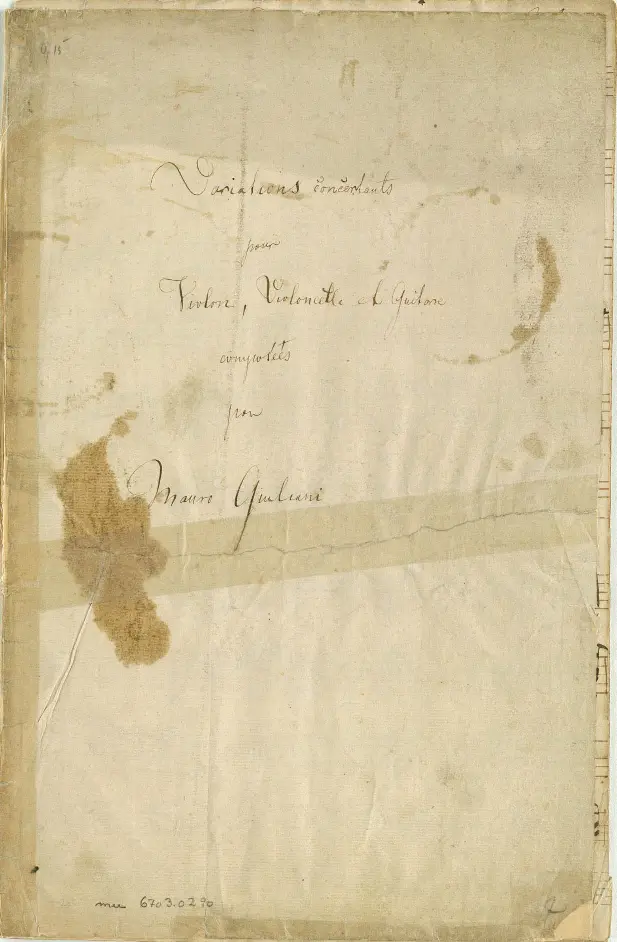 Variations concertants
pour
Violon, Violoncelle et Guitare
composées
par
Mauro Giuliani
6703.0290
2